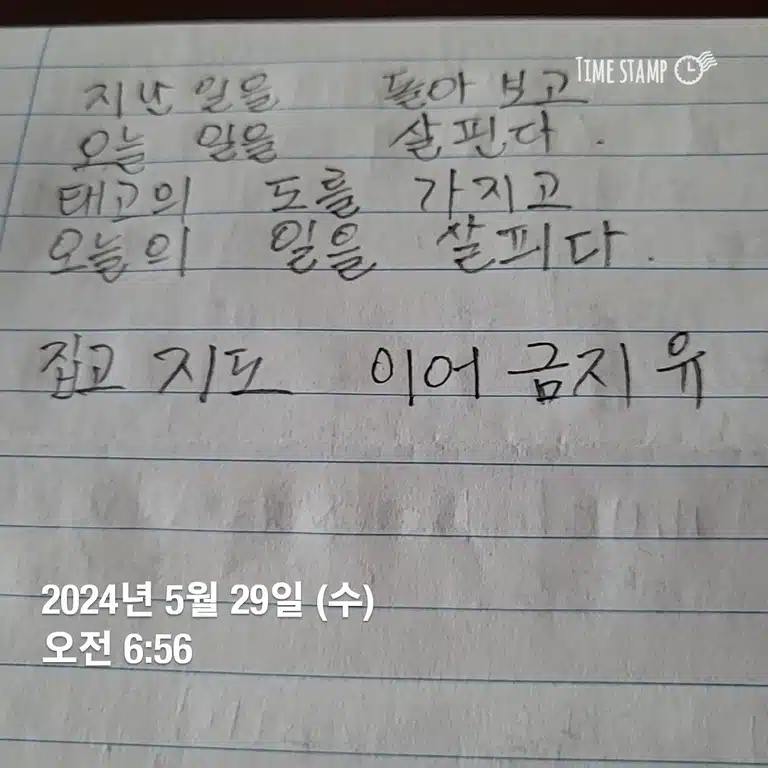 TIME STAMP
지난 일을 돌아 보고
오늘 일을 살핀다.
태고의 도를 가지고
오늘의 일을 살피다.
집고 지도 이어 금지 유
2024년 5월 29일 (수)
오전 6:56